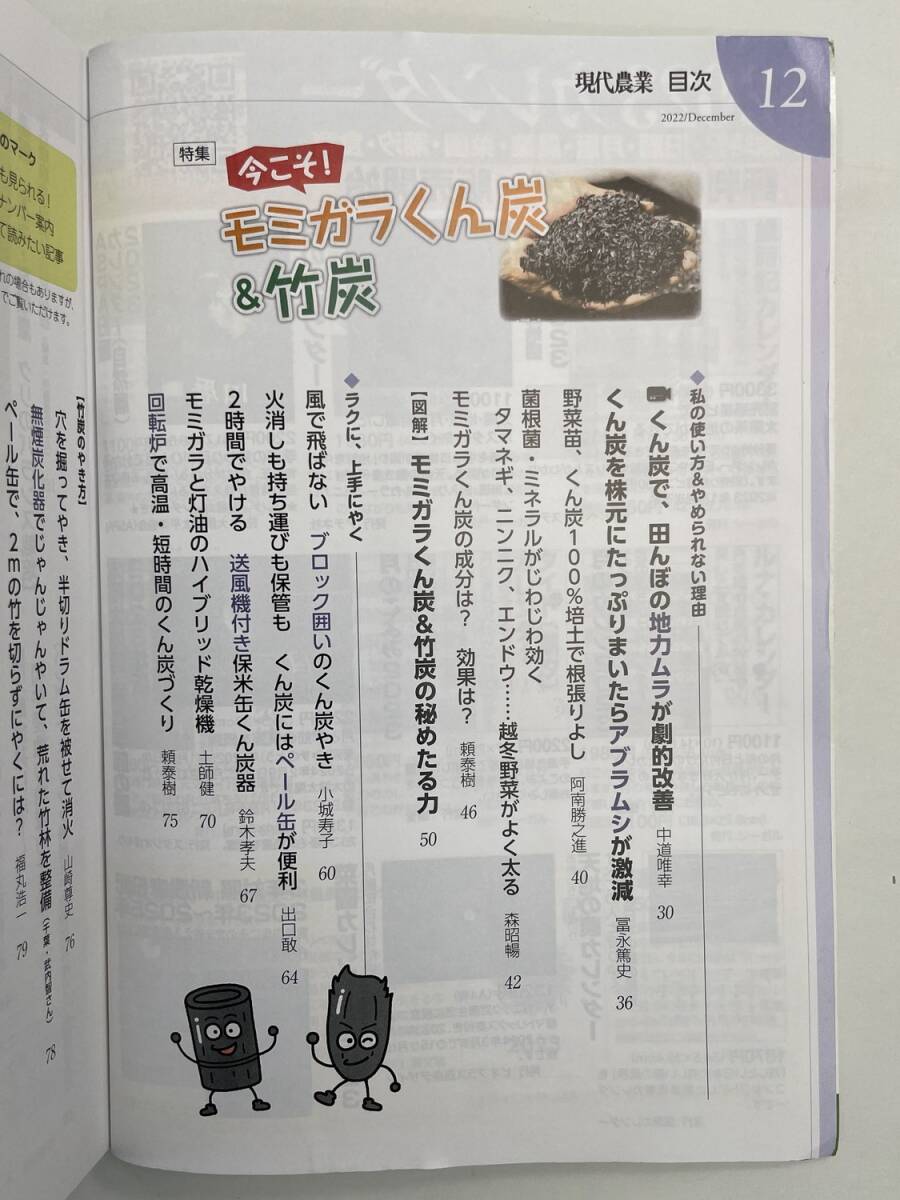 現代農業 目次
12
2022/December
特集
今こそ!
モミガラくん炭
&竹炭
◆私の使い方&やめられない理由
くん炭で、田んぼの地力ムラが劇的改善 中道唯幸 30
くん炭を株元にたっぷりまいたらアブラムシが激減 冨永篤史 36
野菜苗、くん炭100%培土で根張りよし 阿南勝之進 40
菌根菌・ミネラルがじわじわ効く
タマネギ、ニンニク、エンドウ……越冬野菜がよく太る 森昭暢 42
モミガラくん炭の成分は? 効果は? 頼泰樹 46
【図解】モミガラくん炭&竹炭の秘めたる力 50
◆ラクに、上手にやく
風で飛ばない ブロック囲いのくん炭やき 小城寿子 60
火消しも持ち運びも保管も くん炭にはペール缶が便利 出口敢 64
2時間でやける 送風機付き保米缶くん炭器 鈴木孝夫 67
モミガラと灯油のハイブリッド乾燥機 土師健 70
回転炉で高温・短時間のくん炭づくり 頼泰樹 75
【竹炭のやき方】
穴を掘ってやき、半切りドラム缶を被せて消火 山崎尊史 76
無煙炭化器でじゃんじゃんやいて、荒れた竹林を整備(千葉・武内智さん) 78
ペール缶で、2mの竹を切らずにやくには? 福丸浩一 79
のマーク
も見られる!
ナンバー案内
て読みたい記事
れの場合もありますが、
でご覧いただけます。